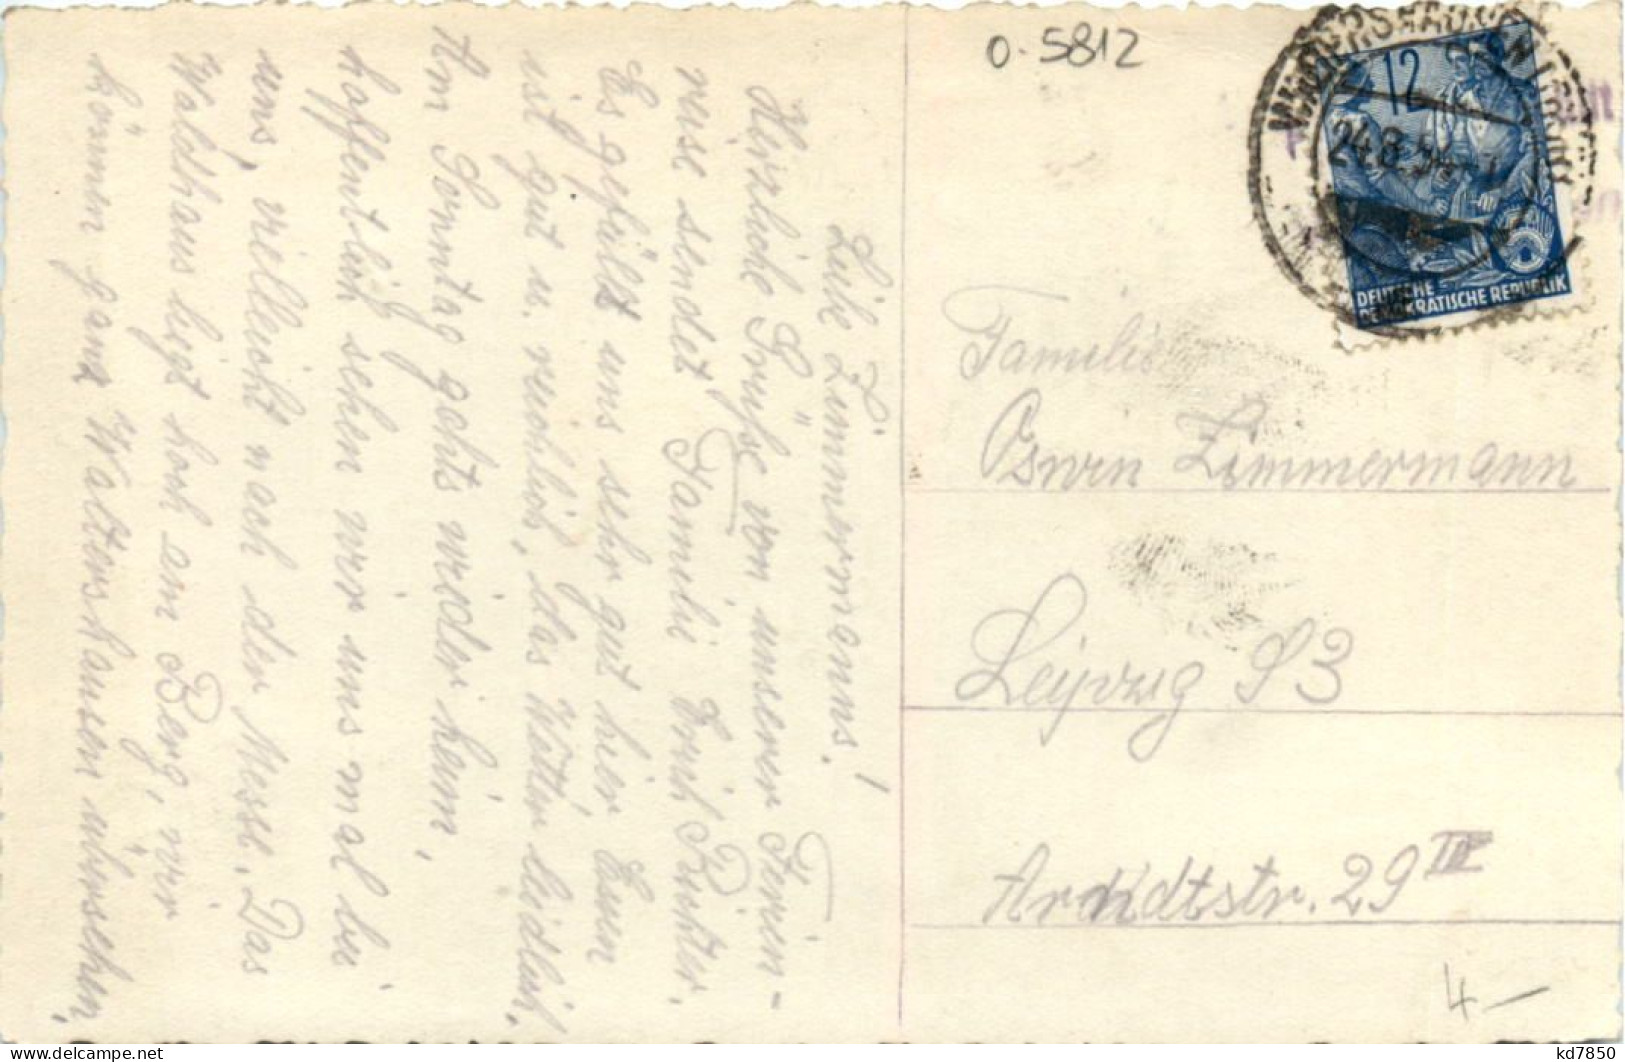 Liebe Zimmermanns!
Herzliche Grüße von unserer Ferien-
reise sendet Familie Erich Richter.
Es gefällt uns sehr gut hier. Essen
ist gut u. reichlich, das Wetter leidlich.
Am Sonntag gehts wieder heim,
hoffentlich sehen wir uns mal bei
uns, vielleicht nach der Messe. Das
Waldhaus liegt hoch am Berg, wir
können ganz Waltershausen übersehen.
0-5812
WALTERSHAUSEN
24.8.54
12
DEUTSCHE
DEMOKRATISCHE REPUBLIK
Familie
Oswin Zimmermann
Leipzig S 3
Arndtstr. 29 III
4 —
kd7850